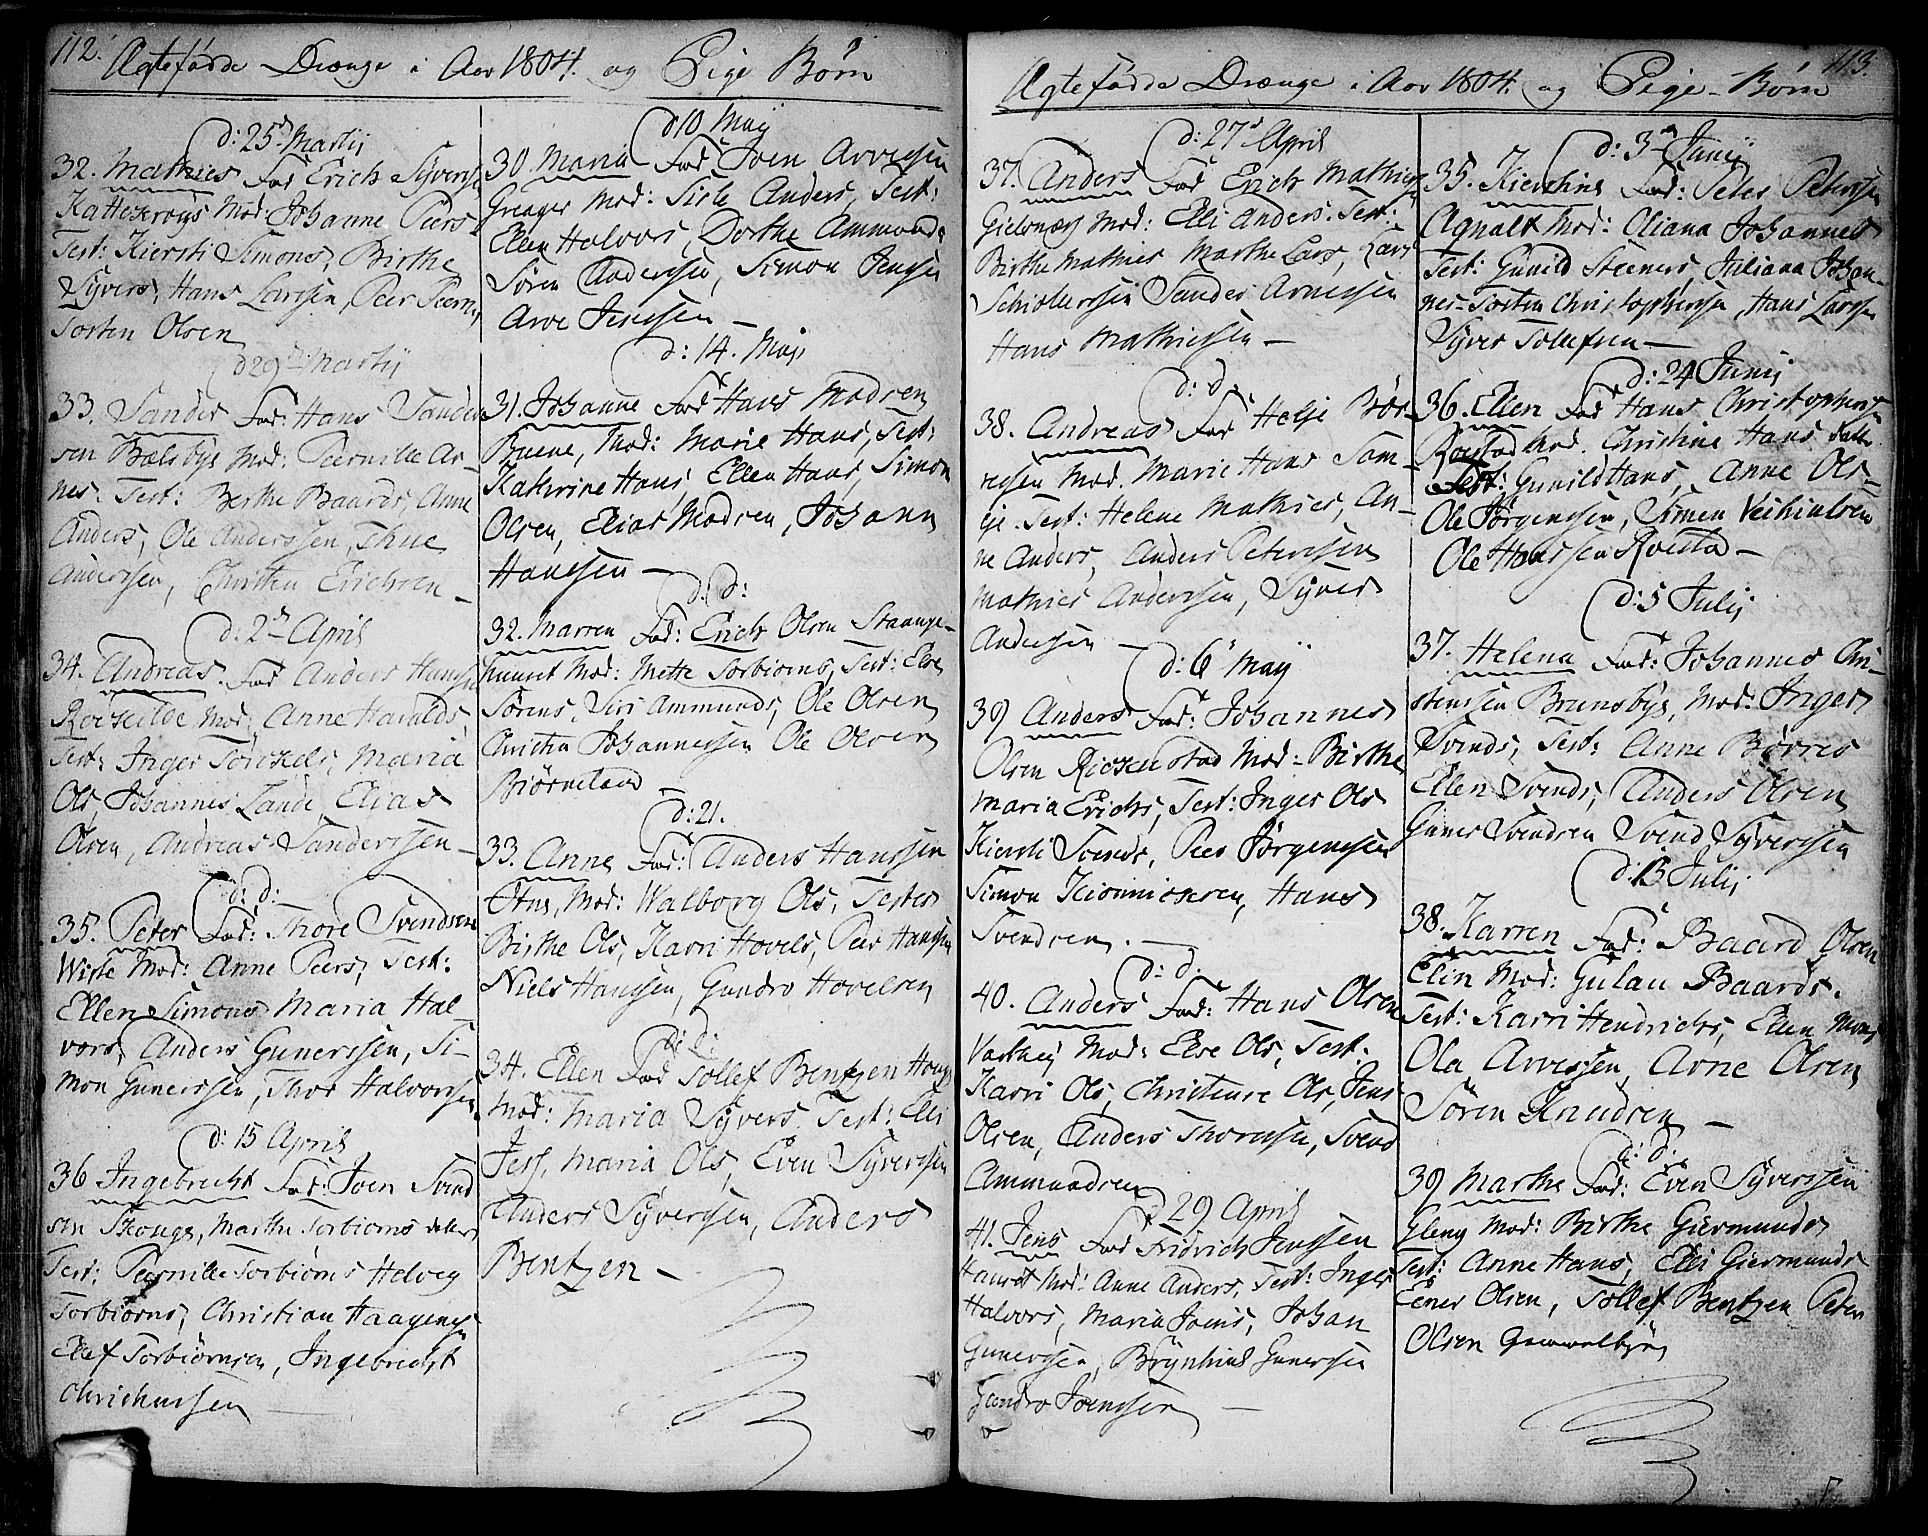 112. Ægtefødde Drænge i Aar 1804. og Pige Børn
d: 25d Martij
32. Mathies Fad Erich Syvers
Katterøys Mod: Johanne Peers
Test: Kiersti Simons, Birthe
Syvers, Hans Larssen, Peer Peers
Torsten Olsen
d 29d Martij
33. Sander Fad: Hans Sander
sen Bælsbye Mod: Pernille Ar-
nes. Test: Berthe Baards, Anne
Anders, Ole Anderssen, Thue
Anderssen, Christen Erichsen
d: 2d April
34. Andreas. Fad Anders Hanssen
Mod: Anne Haralds,
Test: Inger Maria
Ols, Johannes Lande, Elias
Olsen, Andreas Sanderssen
d: d:
35. Peter Fad: Thore Svendsen
Mod: Anne Peers, Test:
Ellen Simons Maria Hal-
vors, Anders Gunerssen, Si-
mon Gunerssen, Thor Halvorssen
d: 15 April
36 Ingebrecht Fad: Joen Svend
sen Skouge, Marthe Torbiørns
Test: Pernille Torbiørns Helvig
Torbiørns, Christian Haagens
Elef Torbiørnsen, Ingebrecht
d 10 Maij
30. Maria Fad: Joen Arvessen
Greager Mod: Sisle Anders, Test:
Ellen Halvors, Dorthe Ammunds
Søren Anderssen, Simon Jenssen
Arve Jenssen
d: 14. Maij
31. Johanne Fad Hans Madsen
Buene, Mod: Marie Hans, Test:
Kathrine Hans, Ellen Hans, Simon
Olsen, Elias Madsen, Johann
Hanssen
d: d:
32. Marren Fad: Erich Olsen Staange-
huuset Mod: Mette Torbiørns, Test: Else
Sørens, Siri Ammunds, Ole Olsen
Christen Johannessen Ole Olsen
Biørneland
d: 21.
33. Anne Fad: Anders Hanssen
Otnes, Mod: Walborg Ols, Testes
Birthe Ols, Karri Hovels, Peer Hanssen
Niels Hanssen, Gundro Hovelsen
d: d:
34. Ellen Fad Tollef Bentzen
Mod: Maria Syvers Test: Elli
Jens, Maria Ols, Even Syverssen
Anders Syverssen, Anders
Bentzen
Ægtefødde Drænge i Aar 1804. og Pige-Børn 113.
d: 27d April
37. Anders Fad Erich Mathies
Mod: Elli Anders. Test:
Birthe Mathies Marthe Lars, Lars
Sander Arnessen
Hans Mathiessen
d: d
38. Andreas Fad Helje Bør-
resen Mod. Marie Hans Sam-
eje. Test: Helene Mathies, An-
ne Anders, Anders Peterssen
Mathies Anderssen, Syver
Anderssen
d: 6d Maij
39 Anders Fad: Johannes
Olsen Mod: Birthe
Maria Erichs, Test: Inger Ols
Kiersti Svends, Peer Jørgenssen
Simon Hans
Svendsen.
d: d.
40. Anders Fad: Hans Olsen
Mod: Else Ols, Test:
Karri Ols, Christense Ols, Jens
Olsen, Anders Thoressen, Svend
Ammundsen
d 29 April
41. Jens Fad Fridrich Jenssen
Mod: Anne Anders, Test: Inger
Halvors, Maria Joens, Johan
Gunerssen, Brynhild Gunerssen
Gundro Joenssen
d: 3d Junij
35. Kierstine Fad: Peter Peterssen
Agnalt Mod: Oliana Johannes
Test: Gunild Steeners, Juliana Johan-
nes Torsten Christophersen, Hans Larssen
Syver Tolefsen
d: 24 Junij
36. Ellen Fad Hans Christophersen
Rostad Mod. Christine Hans
Test: Gunild Hans, Anne Ols
Ole Jørgenssen, Simen
Ole Hanssen Rosta
d: 5 Julij
37. Helena Fad: Johannes An-
stenssen Brunsbye, Mod: Inger
Svends, Test: Anne Børres
Ellen Svends, Anders Olsen
Guner Svendsen Svend Syverssen
d: 13 Julij
38. Karren Fad: Baard Olsen
Elin Mod: Gulau Baards.
Test: Karri Hendrichs, Ellen Mons
Ola Arvessen Arne Olsen
Søren Knudsen
d: d.
39 Marthe Fad: Even Syverssen
Gleng Mod: Birthe Giermunds
Test: Anne Hans, Elli Giermunds
Ener Olsen, Tollef Bentzen Peter
Olsen